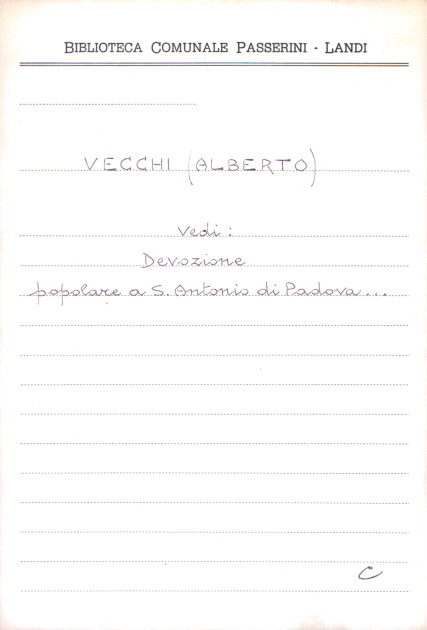 BIBLIOTECA COMUNALE PASSERINI - LANDI
VECCHI (ALBERTO)
Vedi:
Devozione
popolare a S. Antonio di Padova...
C